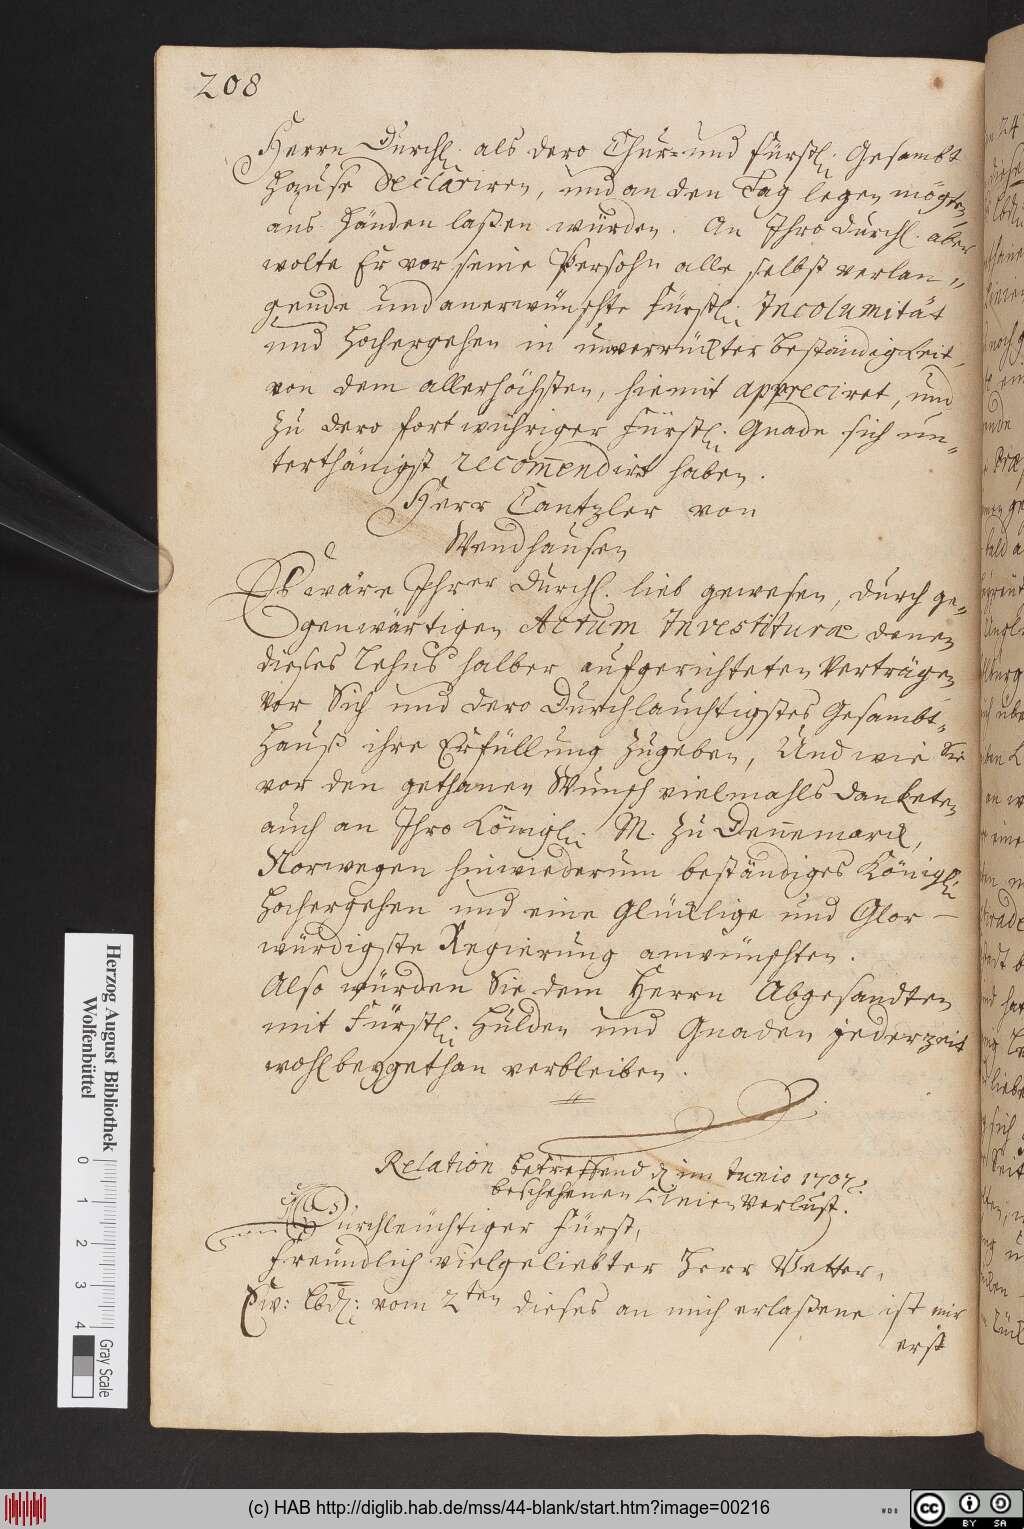 208
Herrn Durchl. als dero Chur- und Fürstl. Gesambt
Hauße declariren, und an den Tag legen mögten,
aus Händen laßen würden. An Ihro Durchl. aber
wolte Er vor seine Persohn alle selbst verlan=
gende und anerwünschte Fürstl. Incolumität
und Hochergehen in unverrückter Beständigkeit,
von dem allerhöchsten, hiemit appreciret, und
zu dero fortwühriger Fürstl. Gnade sich un=
terthänigst recomendirt haben.
Herr Cantzler von
Wendhausen
Es wäre Ihrer Durchl. lieb gewesen, durch ge=
genwärtigen Actum Investituræ denen
dieses Lehns halber aufgerichteten Verträgen
vor Sich und dero Durchlauchtigstes Gesambt=
Hauß ihre Erfüllung zugeben, Und wie Sie
vor den gethanen Wunsch vielmahls danketen
auch an Ihro Königl. M. zu Dennemarck,
Norwegen hinwiederum beständiges Königl.
Hochergehen und eine Glücklige und Glor-
würdigste Regierung anwünschten.
Also würden Sie dem Herrn Abgesandten
mit Fürstl. Hulden und Gnaden jederzeit
wohlbeygethan verbleiben.
Relation betreffend d. im Junio 1707.
beschehenen Linien Verlust.
Durchleuchtiger Fürst,
freundlich vielgeliebter Herr Vetter,
Ew: Lbd: vom 2ten dieses an mich erlaßene ist mir
erst
Herzog August Bibliothek
Wolfenbüttel
0 1 2 3 4
Gray Scale
(c) HAB http://diglib.hab.de/mss/44-blank/start.htm?image=00216
WDB
cc BY SA